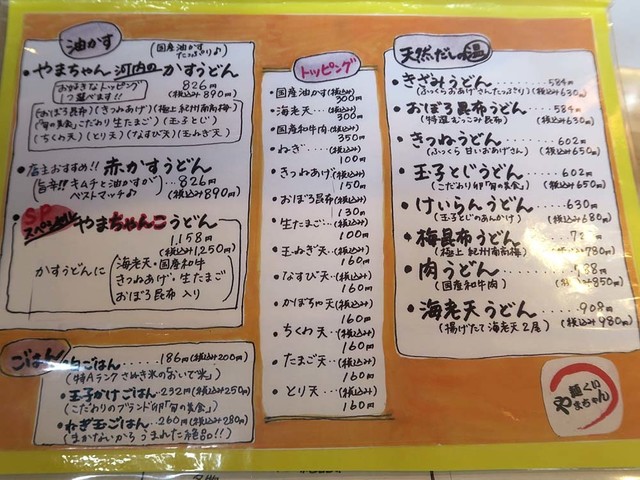 油かす
(国産油かす
たっぷり♪)
・やまちゃん 河内のかすうどん
826円
(税込み890円)
お好きなトッピング
1つ選べます!!
(おぼろ昆布)(きつねあげ)(極上 紀州南高梅)
(「旬の美食」こだわり生たまご)(玉子とじ)
(ちくわ天)(とり天)(なすび天)(玉ねぎ天)
・店主おすすめ!! 赤かすうどん
(旨辛!! キムチと油かすが
ベストマッチ♪)
・826円
(税込み890円)
・SP
スペシャル やまちゃんこうどん
1,158円
(税込み1,250円)
かすうどんに
海老天・国産和牛
きつねあげ・生たまご
おぼろ昆布 入り
ごはん
・白ごはん・・・・・186円(税込み200円)
(特Aランク さぬき米のおいで米)
・玉子かけごはん・・232円(税込み250円)
(こだわりのブランド卵「旬の美食」)
・ねぎ玉ごはん・・260円(税込み280円)
(まかないから うまれた絶品!!)
トッピング
・国産油かす(税込み)
300円
・海老天・・(税込み)
300円
・国産和牛肉(税込み)
350円
・ねぎ・・・(税込み)
100円
・きつねあげ(税込み)
150円
・おぼろ昆布(税込み)
130円
・生たまご・(税込み)
100円
・玉ねぎ天・(税込み)
160円
・なすび天・(税込み)
160円
・かぼちゃ天(税込み)
160円
・ちくわ天・・(税込み)
160円
・たまご天・(税込み)
160円
・とり天・・(税込み)
160円
天然だしの温
・きざみうどん・・・・・584円
(ふっくらおあげさんたっぷり)(税込み630円)
・おぼろ昆布うどん・・・584円
(特選 むっこみ昆布)(税込み630円)
・きつねうどん・・・・602円
(ふっくら 甘いおあげさん)(税込み650円)
・玉子とじうどん・・・602円
(こだわり卵「旬の美食」)(税込み650円)
・けいらんうどん・・・630円
(玉子とじのあんかけ)(税込み680円)
・梅昆布うどん
(極上 紀州南高梅)(税込み780円)
・肉うどん
(国産和牛肉)(税込み850円)
・海老天うどん・・・・908円
(揚げたて海老天2尾)(税込み980円)
麺くい
やまちゃん